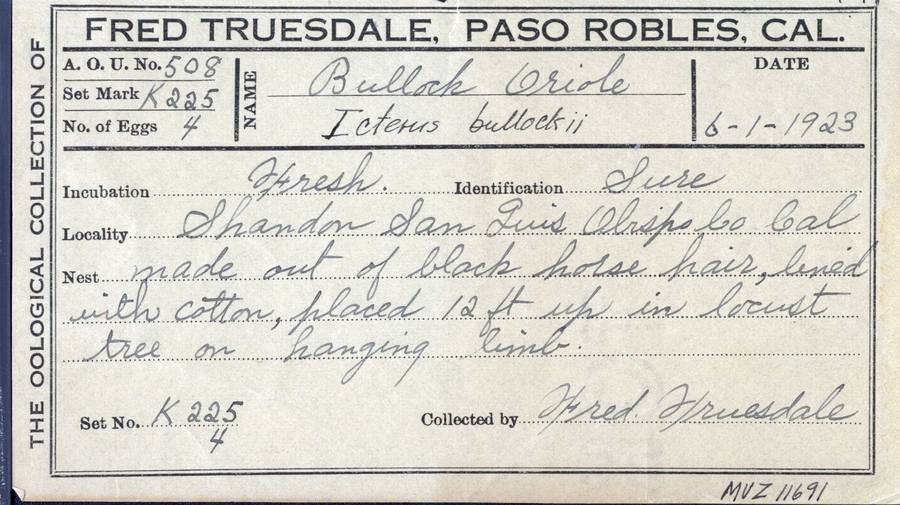 FRED TRUESDALE, PASO ROBLES, CAL.
THE OOLOGICAL COLLECTION OF
A. O. U. No. 508
Set Mark K 225
No. of Eggs 4
NAME
Bullock Oriole
Icterus bullockii
DATE
6-1-1923
Incubation Fresh. Identification Sure
Locality Shandon San Luis Obispo Co Cal
Nest made out of black horse hair, lined
with cotton, placed 12 ft up in locust
tree on hanging limb.
Set No. K 225
4
Collected by Fred. Truesdale
MVZ 11691